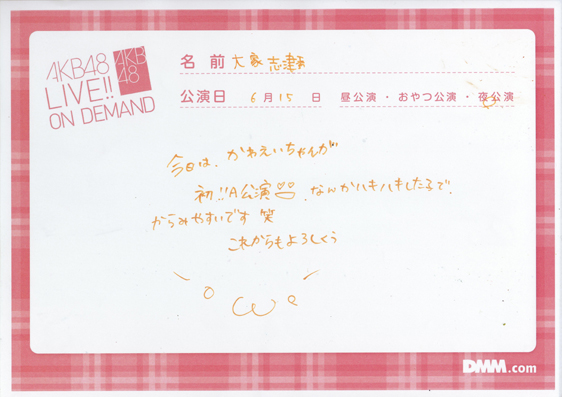 AKB48
LIVE!!
ON DEMAND
AKB
48
名 前 大家志津香
公演日 6 月 15 日 昼公演・おやつ公演・夜公演
今日は、かわえいちゃんが
初!!A公演 なんかハキハキした子で、
からみやすいです 笑
これからもよろしくぅ
DMM.com